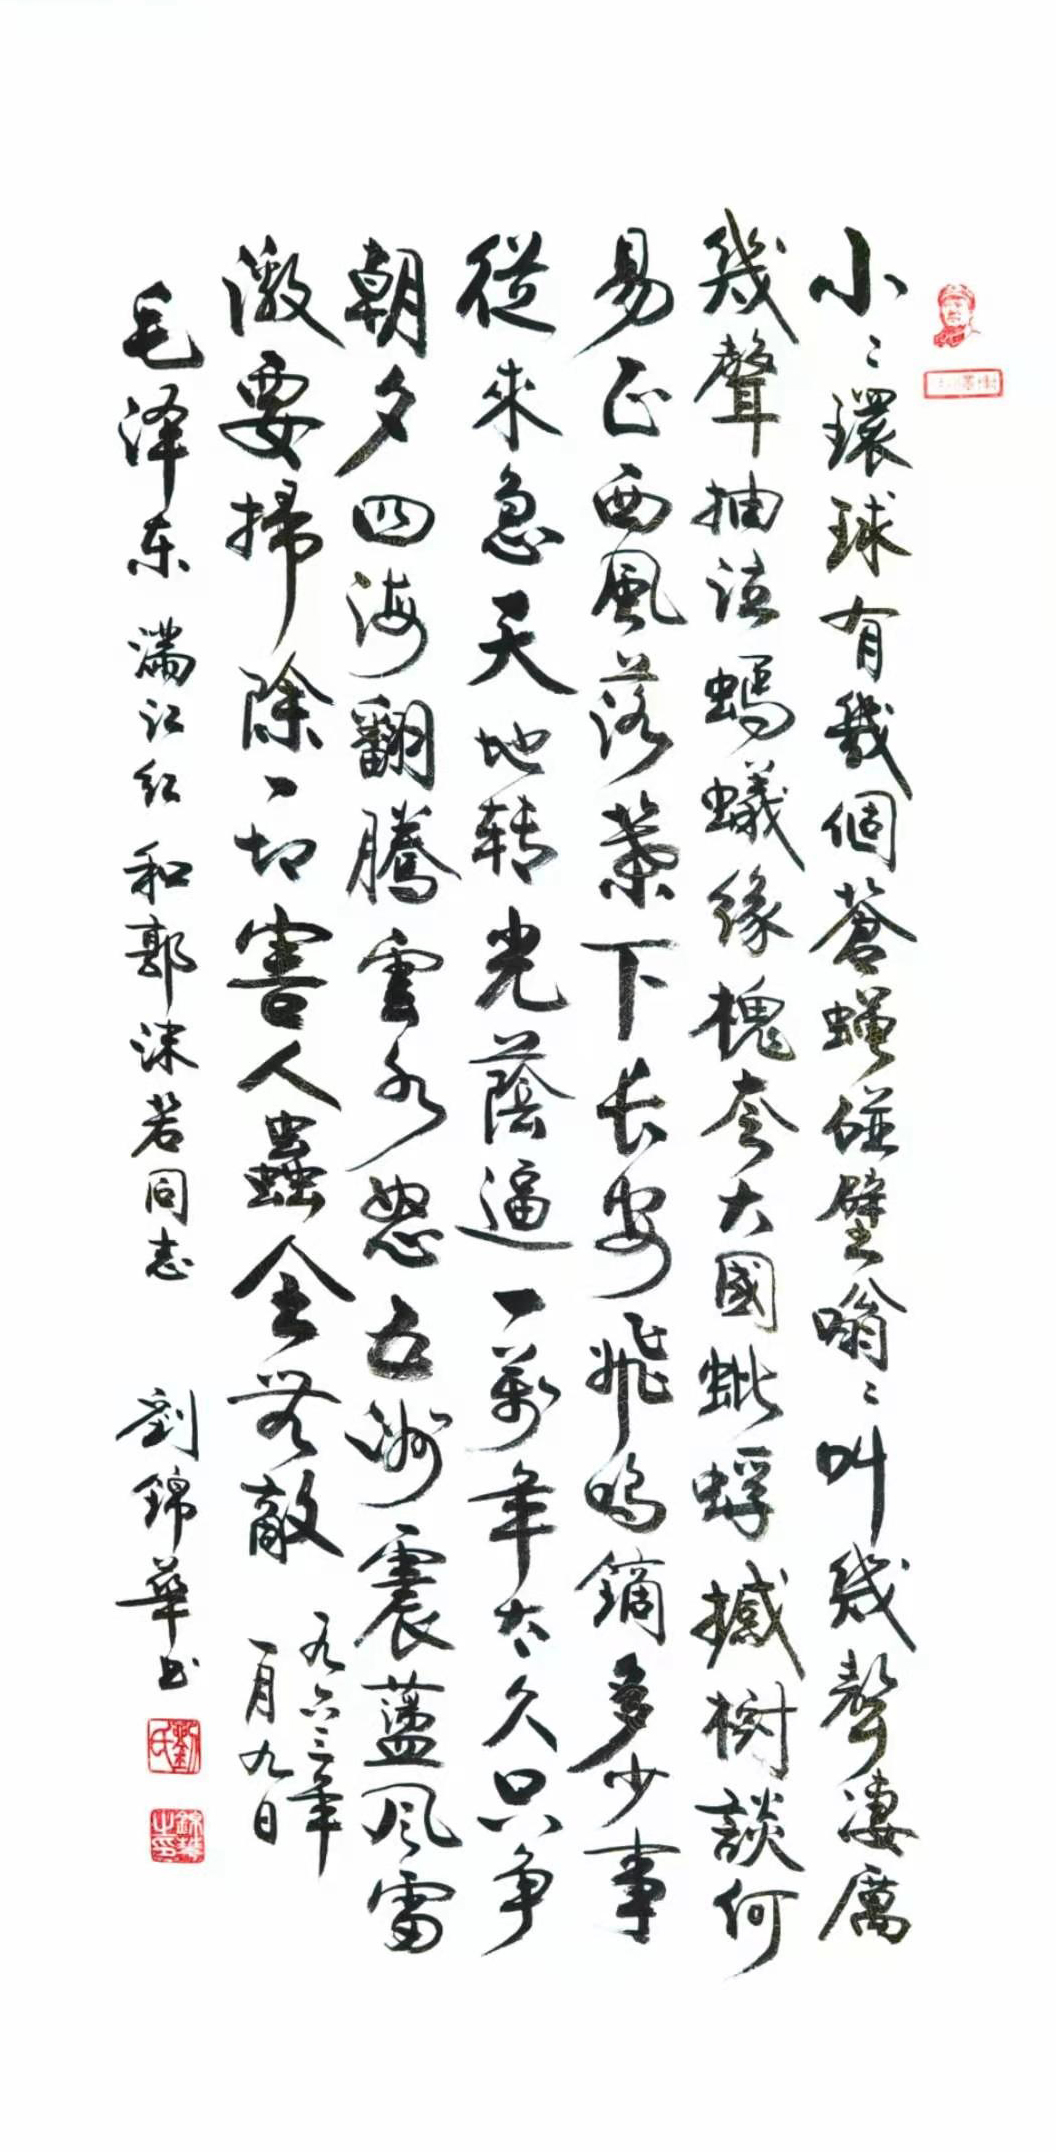 小〻環球有幾個蒼蠅碰壁嗡〻叫幾聲凄厲
幾聲抽泣螞蟻緣槐夸大國蚍蜉撼樹談何
易正西風落葉下长安飛鳴鏑多少事
從來急天地转光蔭逼一萬年太久只争
朝夕四海翻騰雲水怒五洲震蘯风雷
激要掃除一切害人蟲全无敵
九六三年
一月九日
毛泽东 满江红 和郭沫若同志 劉錦華书
劉氏
錦華之印